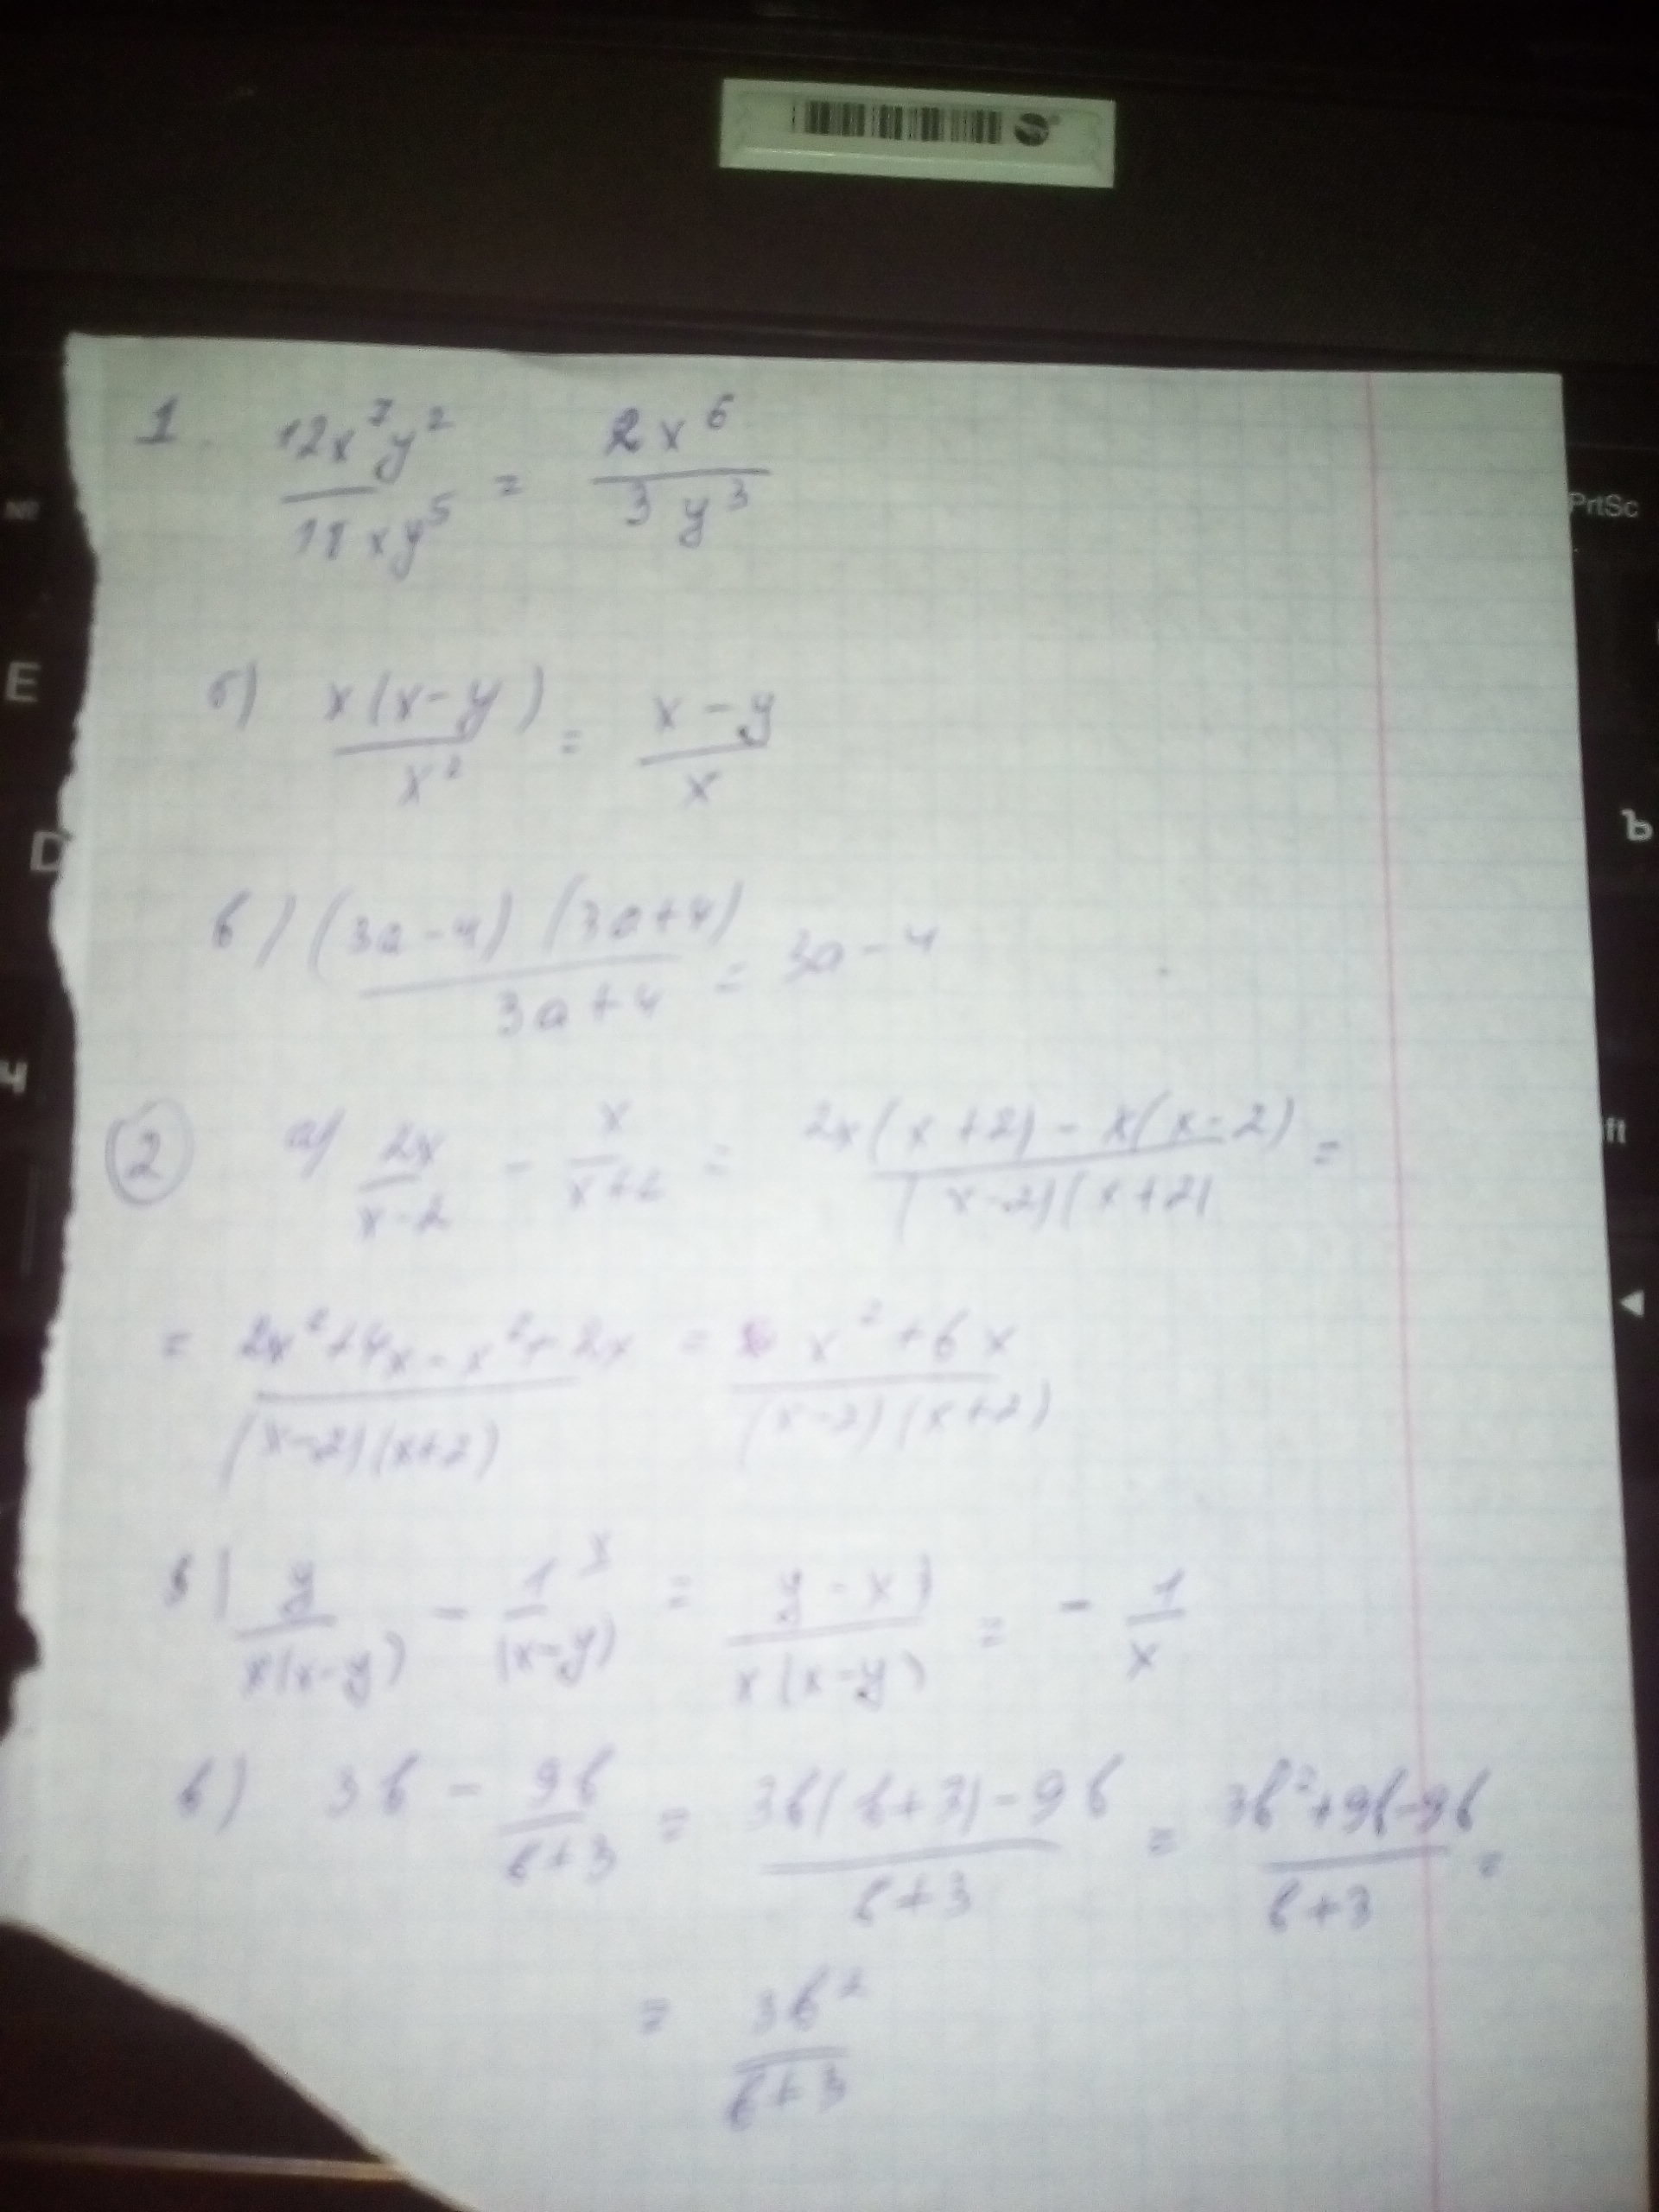 1. 12x⁷y² / 18xy⁵ = 2x⁶ / 3y³
б) x(x-y) / x² = x-y / x
в) (3a-4)(3a+4) / 3a+4 = 3a-4
2 а) 2x / x-2 - x / x+2 = 2x(x+2)-x(x-2) / (x-2)(x+2) =
= 2x²+4x-x²+2x / (x-2)(x+2) = x²+6x / (x-2)(x+2)
б) y / x(x-y) - 1 x / (x-y) = y-x) / x(x-y) = - 1 / x
в) 3b - 9b / b+3 = 3b(b+3)-9b / b+3 = 3b²+9b-9b / b+3 =
= 3b² / b+3
№
E
D
Ч
PrtSc
Ъ
ft